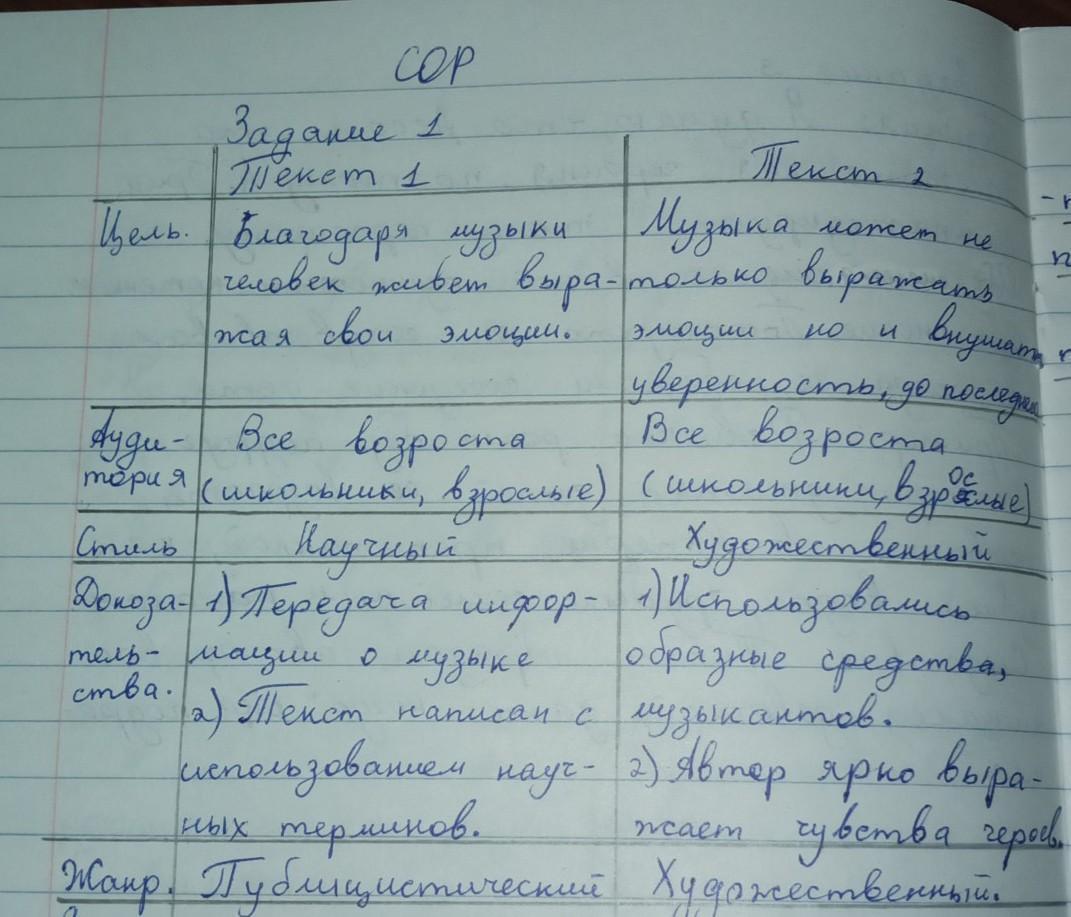 СОР
Задание 1
Текст 1
Текст 2
Цель.
Благодаря музыки
человек живет выра-
жая свои эмоции.
Музыка может не
только выражать
эмоции но и внушать
уверенность, до
Ауди-
тория
Все возроста
(школьники, взрослые)
Все возроста
(школьники, взрослые)
Стиль
Научный
Художественный
Доказа-
тель-
ства.
1) Передача инфор-
мации о музыке
2) Текст написан с
использованием науч-
ных терминов.
1) Использовались
образные средства,
музыкантов.
2) Автор ярко выра-
жает чувства героев.
Жанр.
Публицистический
Художественный.